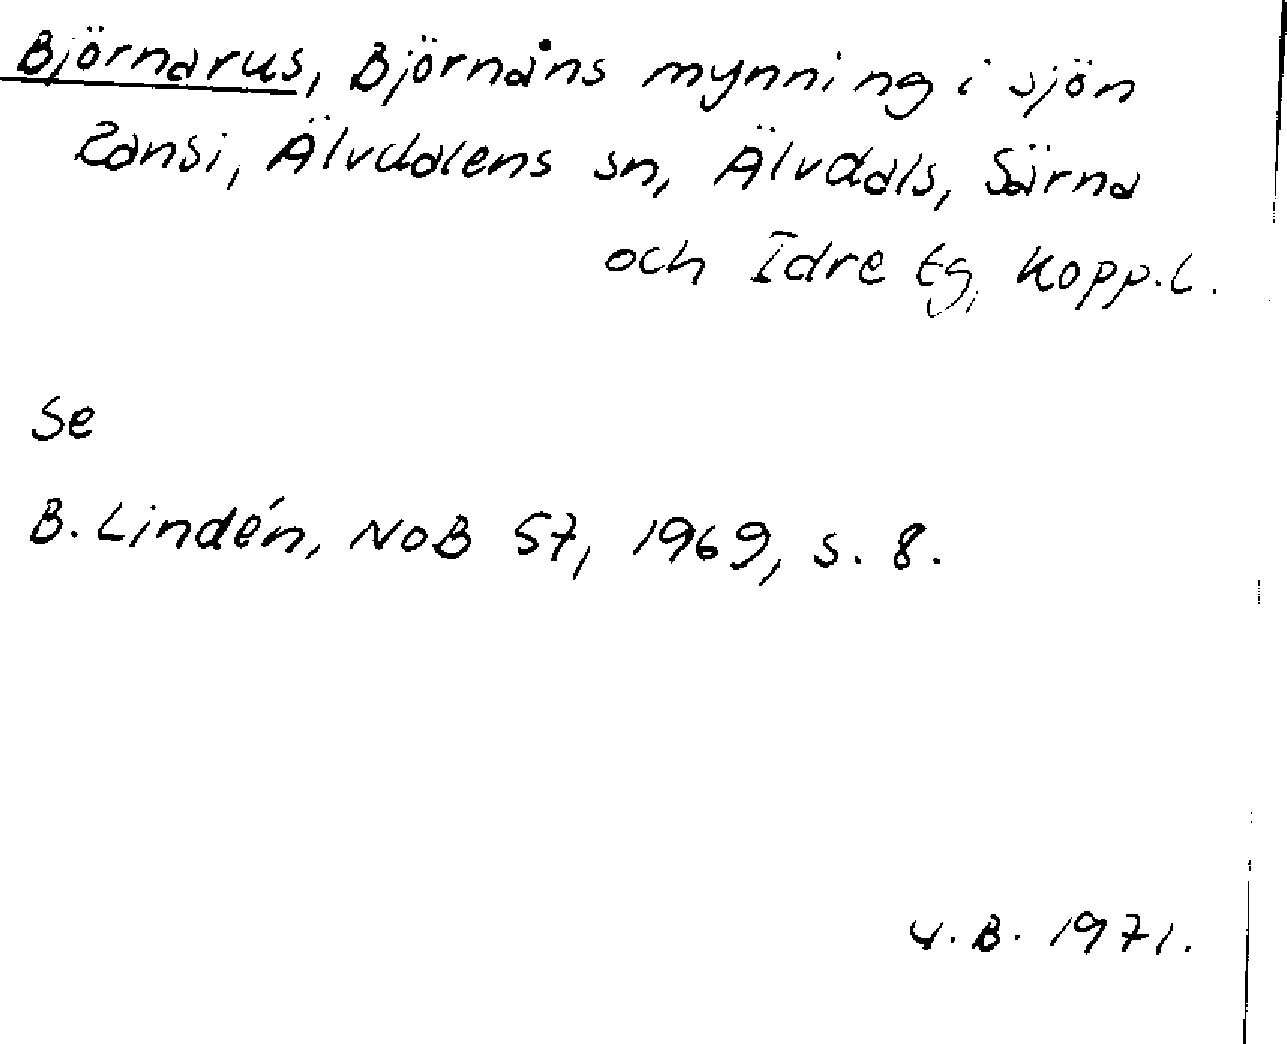 Björnarus, Björnåns mynning i sjön
Ransi, Älvdalens sn, Älvdals, Särna
och Idre tg, Kopp.l.
Se
B. Lindén, NoB 57, 1969, s. 8.
V.B. 1971.